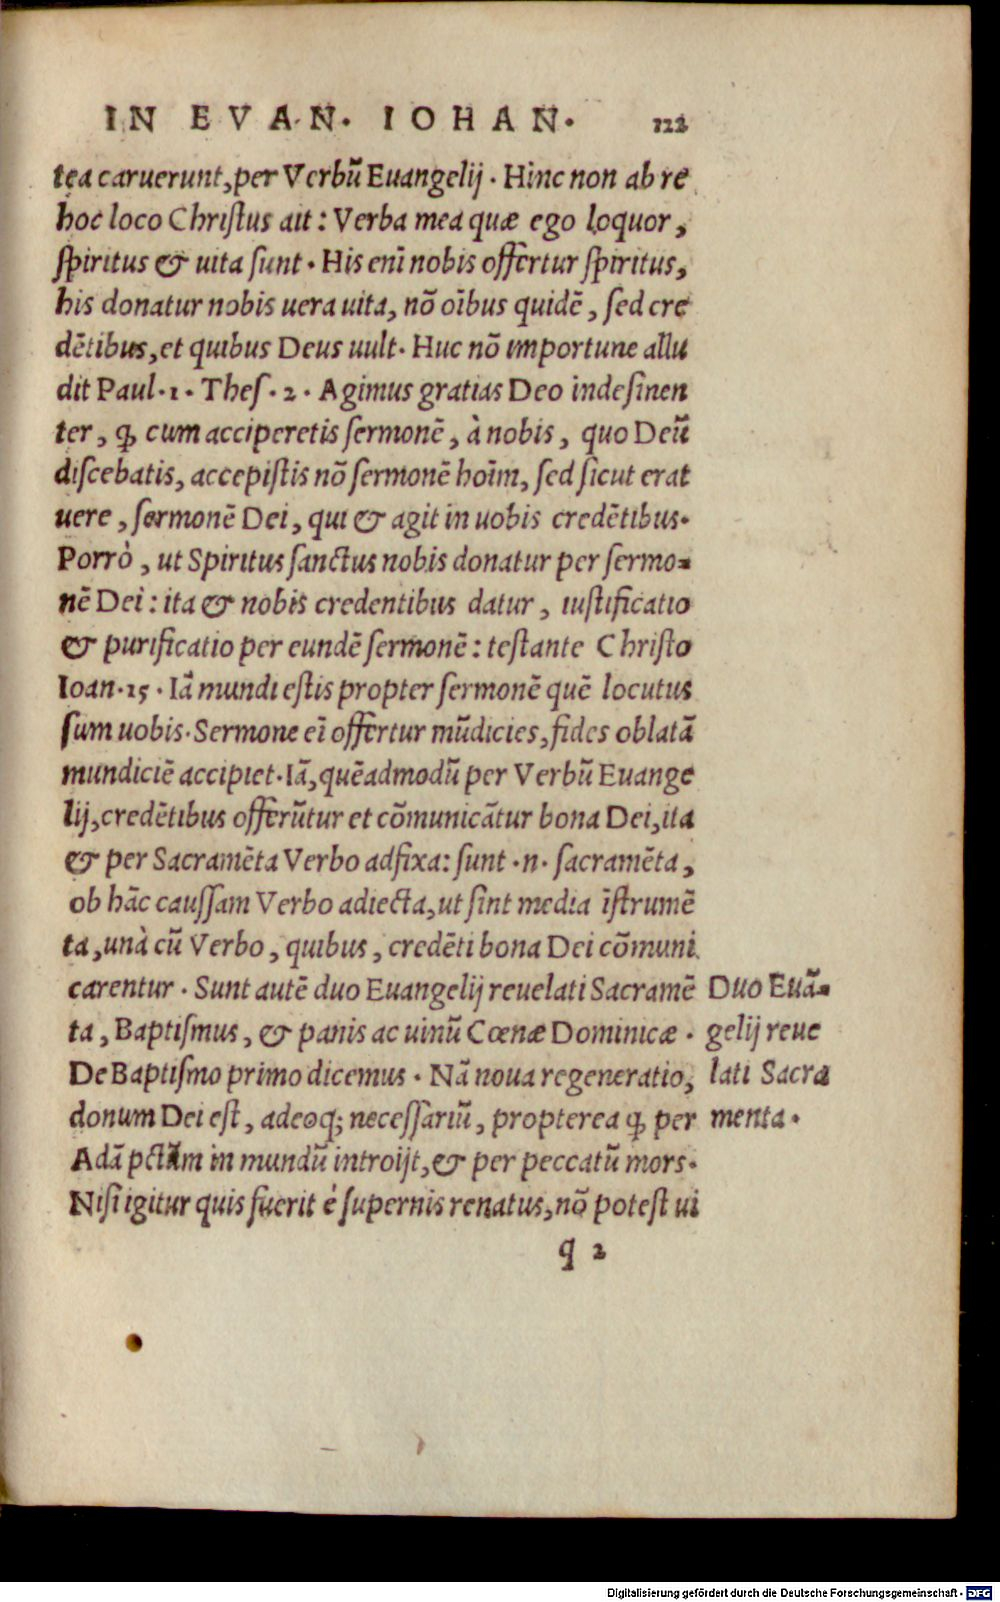 IN EVAN. IOHAN. 122
tea caruerunt, per Verbũ Euangelij. Hinc non ab re
hoc loco Chriſtus ait: Verba mea quæ ego loquor,
ſpiritus & uita ſunt. His enĩ nobis offertur ſpiritus,
his donatur nobis uera uita, nõ oĩbus quidẽ, ſed cre
dẽtibus, et quibus Deus uult. Huc nõ importune allu
dit Paul. 1. Theſ. 2. Agimus gratias Deo indeſinen
ter, ꝙ cum acciperetis ſermonẽ, à nobis, quo Deũ
diſcebatis, accepiſtis nõ ſermonẽ hoĩm, ſed ſicut erat
uere, ſermonẽ Dei, qui & agit in uobis credẽtibus.
Porrò, ut Spiritus ſanctus nobis donatur per ſermo-
nẽ Dei: ita & nobis credentibus datur, iuſtificatio
& purificatio per eundẽ ſermonẽ: teſtante Chriſto
Ioan. 15. Iã mundi eſtis propter ſermonẽ quẽ locutus
ſum uobis. Sermone eĩ offertur mũdicies, fides oblatã
mundiciẽ accipiet. Iã, quẽadmodũ per Verbũ Euange
lij, credẽtibus offerũtur et cõmunicãtur bona Dei, ita
& per Sacramẽta Verbo adfixa: ſunt .n. ſacramẽta,
ob hãc cauſſam Verbo adiecta, ut ſint media ĩſtrumẽ
ta, unà cũ Verbo, quibus, credẽti bona Dei cõmuni
carentur. Sunt autẽ duo Euangelij reuelati Sacramẽ
ta, Baptiſmus, & panis ac uinũ Cœnæ Dominicæ.
De Baptiſmo primo dicemus. Nã noua regeneratio,
donum Dei eſt, adeoq; neceſſariũ, propterea ꝙ per
Adã pctãm in mundũ introijt, & per peccatũ mors.
Niſi igitur quis fuerit è ſupernis renatus, nõ poteſt ui
Duo Euã-
gelij reue
lati Sacra
menta.
q 2
Digitalisierung gefördert durch die Deutsche Forschungsgemeinschaft - DFG